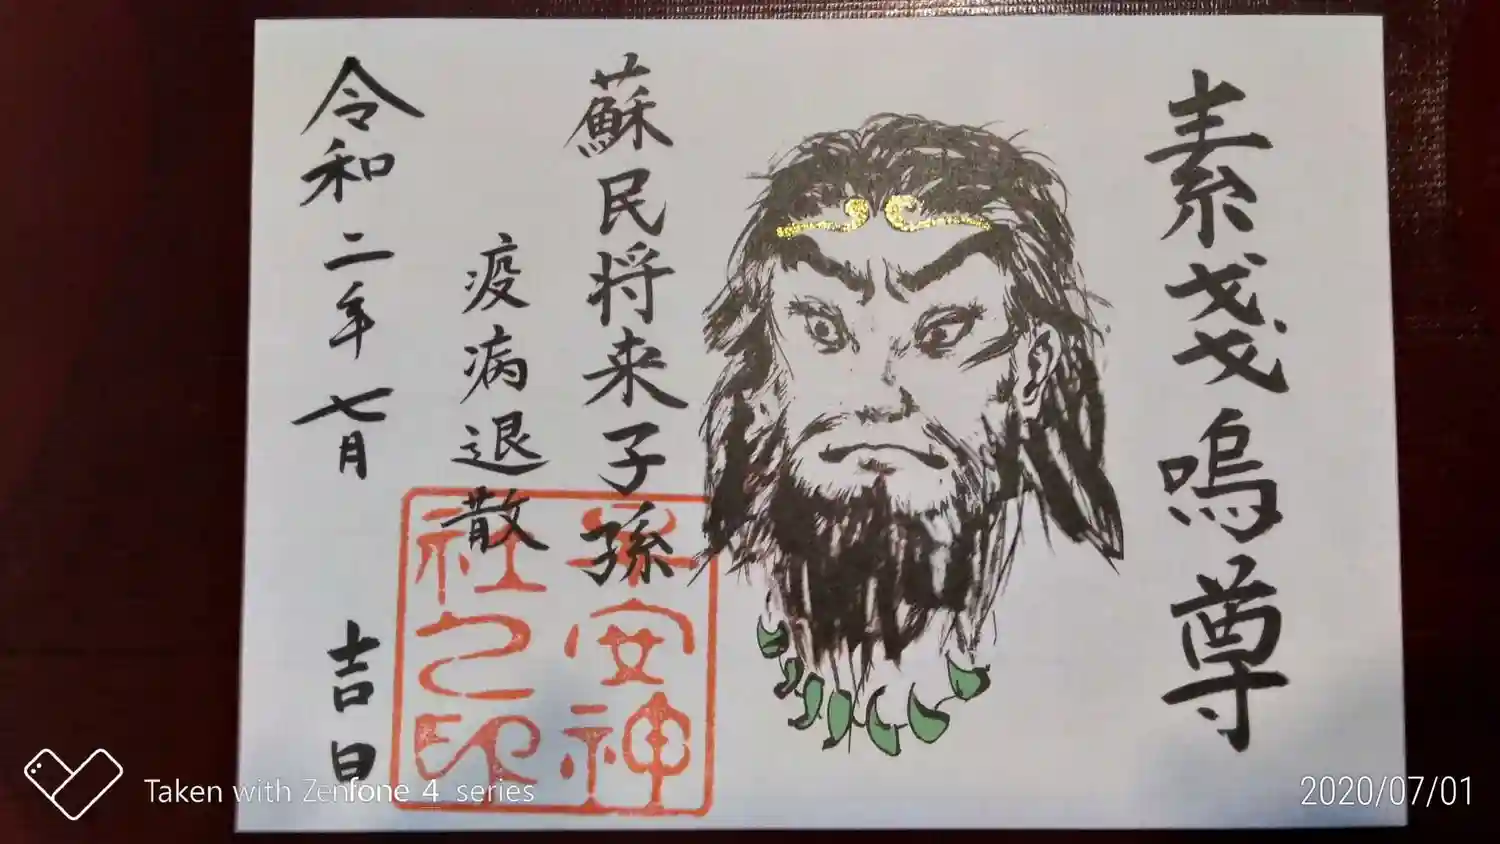 素戔嗚尊
蘇民将来子孫
疫病退散
令和二年七月吉日
安神
社之印
Taken with Zenfone 4 series
2020/07/01